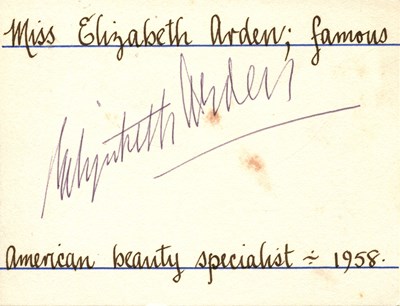 Miss Elizabeth Arden; famous
Elizabeth Arden
American beauty specialist ÷ 1958.